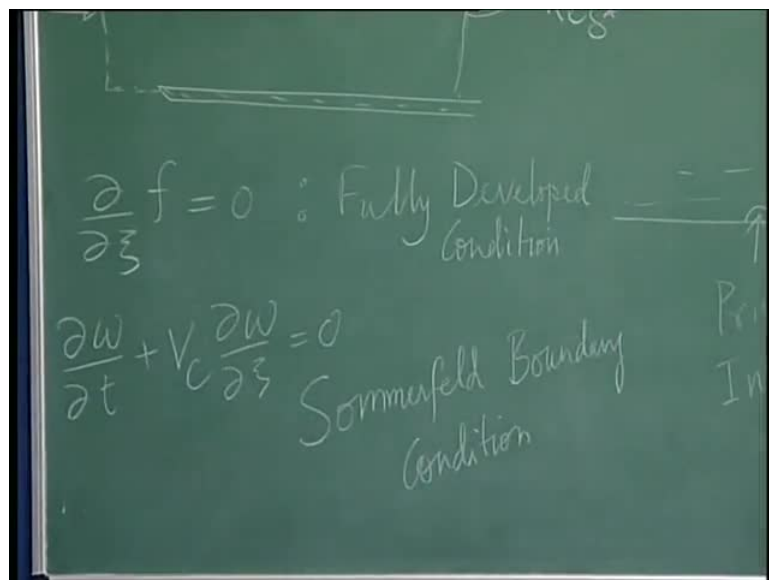 ∂/∂ξ f = 0 : Fully Developed
Condition
∂ω/∂t + V_c ∂ω/∂ξ = 0
Sommerfeld Boundary
Condition